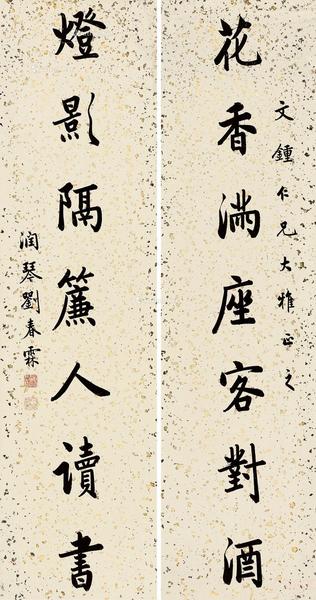 文鍾仁兄大雅正之
花香滿座客對酒
燈影隔簾人讀書
潤琴劉春霖